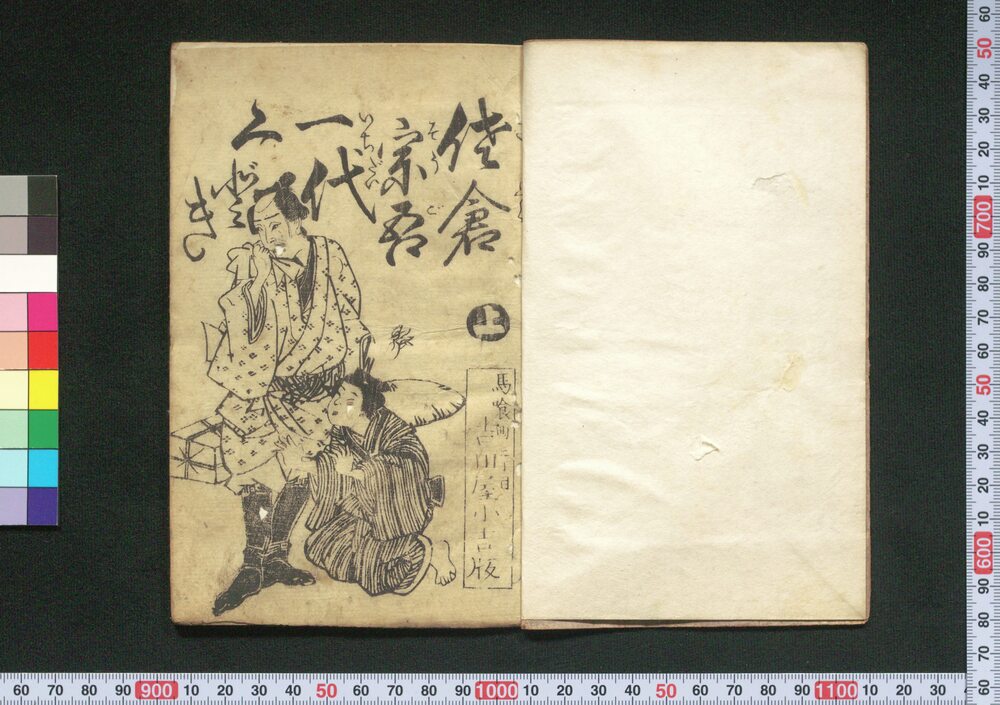 佐倉
宗吾
そうご
一代
いちだい
くどき
上
馬喰町三丁目
吉田屋小吉版
60 70 80 90 900 10 20 30 40 50 60 70 80 90 1000 10 20 30 40 50 60 70 80 90 1100 10 20 30
60 50 40 30 20 10 700 90 80 70 60 50 40 30 20 10 600 90 80 70 60